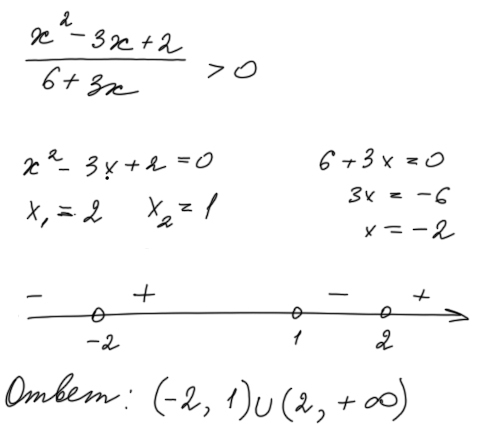 x² - 3x + 2
6 + 3x
> 0
x² - 3x + 2 = 0
x₁ = 2 x₂ = 1
6 + 3x = 0
3x = -6
x = -2
- + - +
-2 1 2
Ответ: (-2, 1) ∪ (2, +∞)